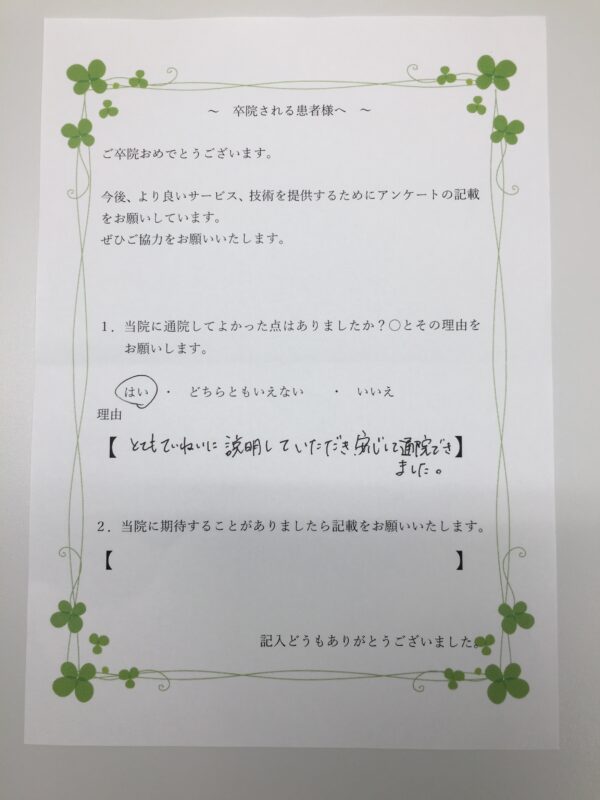 ～ 卒院される患者様へ ～
ご卒院おめでとうございます。
今後、より良いサービス、技術を提供するためにアンケートの記載
をお願いしています。
ぜひご協力をお願いいたします。
１．当院に通院してよかった点はありましたか？〇とその理由を
お願いします。
はい ・ どちらともいえない ・ いいえ
理由
【 とてもていねいに説明していただき安心して通院でき】
ました。
２．当院に期待することがありましたら記載をお願いいたします。
【 】
記入どうもありがとうございました。